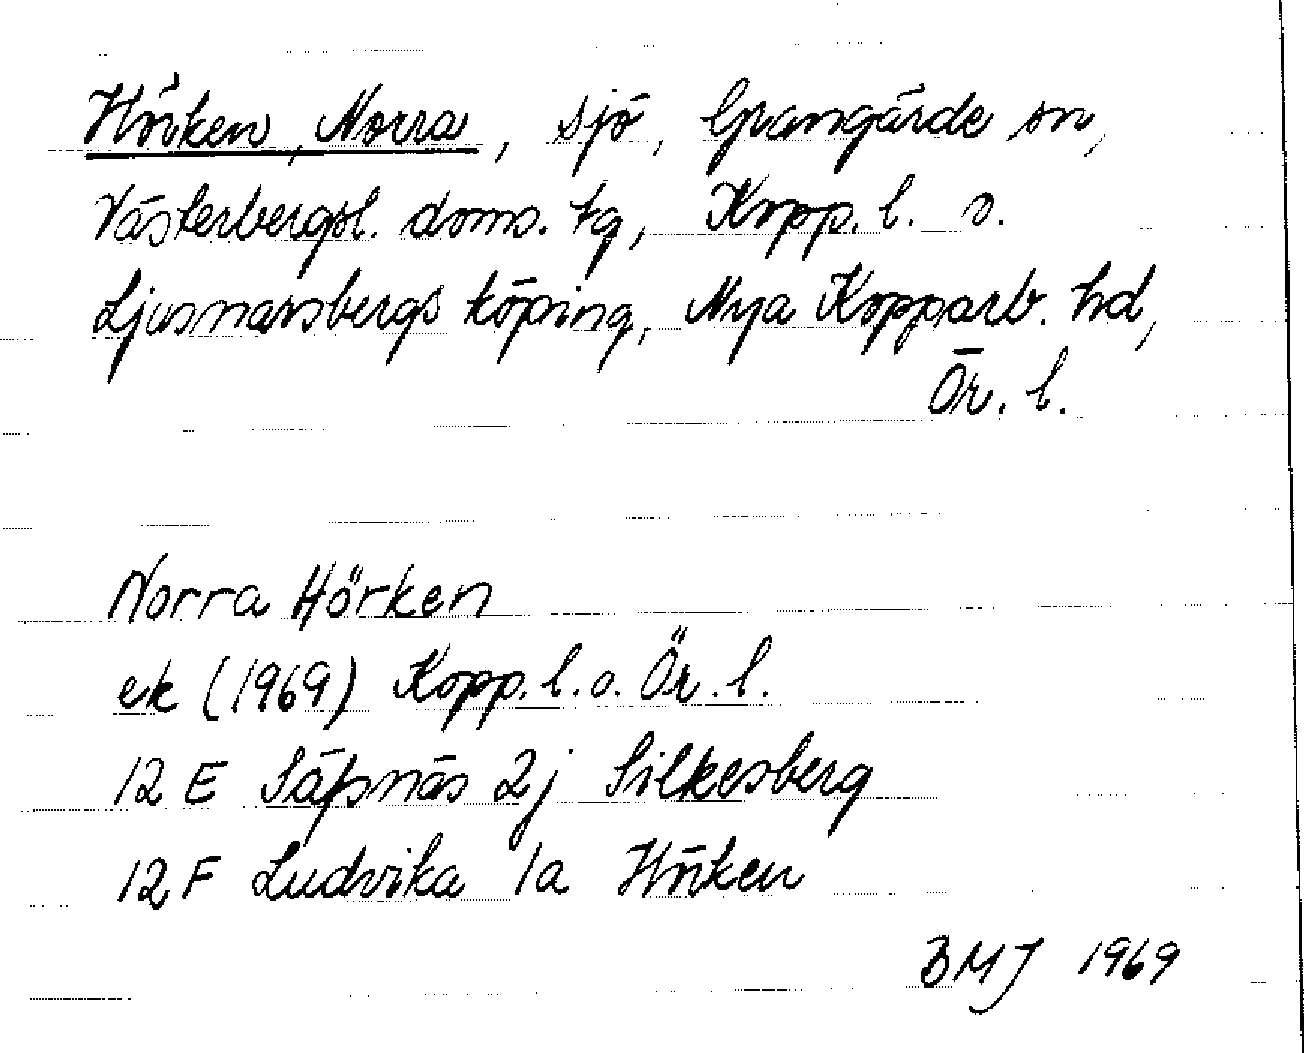 Hörken, Norra, sjö, Grangärde sn,
Västerbergsl. doms. tg, Kopp. l. o.
Ljusnarsbergs köping, Nya Kopparb. hd,
Ör. l.
Norra Hörken
ek (1969) Kopp. l. o. Ör. l.
12 E Säfsnäs 2j Silkesberg
12 F Ludvika 1a Hörken
BMJ 1969